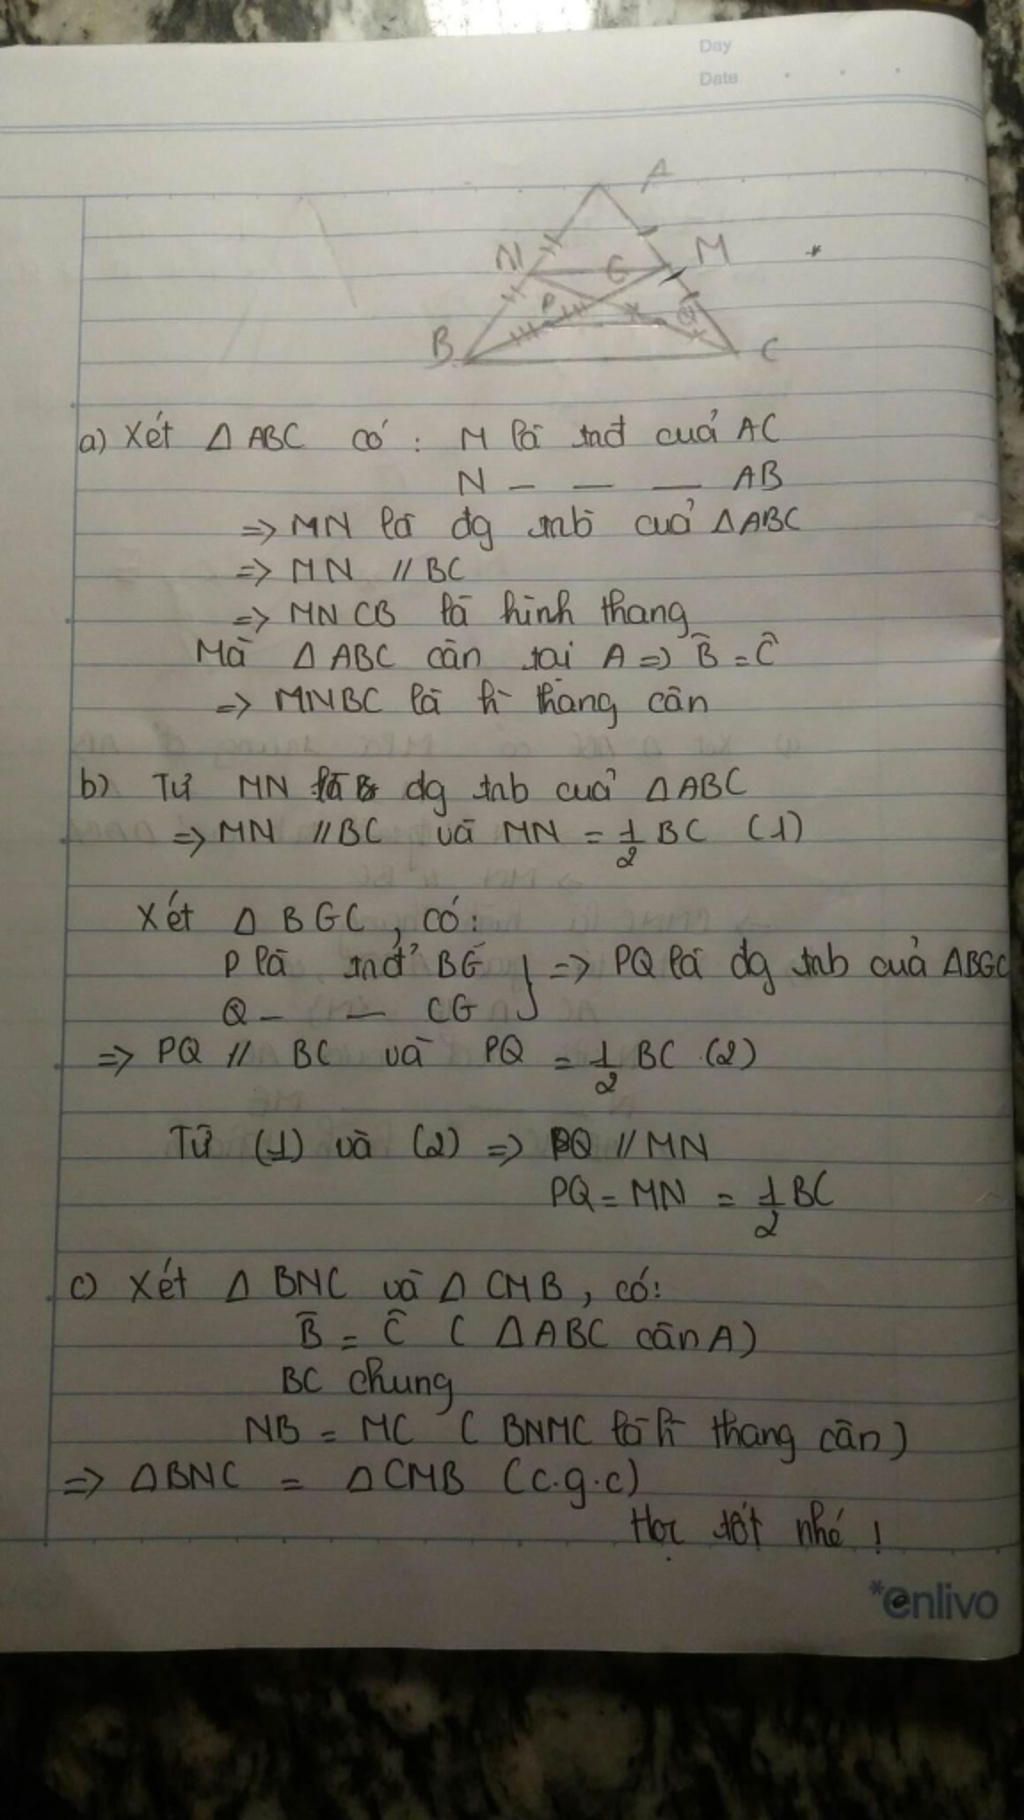 Day
Date
A
N
G
M
P
Q
B
C
a) Xét Δ ABC có : M là tnđ cuả AC
N — — — AB
=> MN là đg tnb cuả ΔABC
=> MN // BC
=> MNCB là hình thang
Mà Δ ABC cân tai A => B̂ = Ĉ
=> MNBC là h` thang cân
b) Từ MN là đg tnb cuả ΔABC
=> MN // BC và MN = 1/2 BC (1)
Xét Δ BGC, có:
P là tnđ BG } => PQ là đg tnb cuả ΔBGC
Q — — CG
=> PQ // BC và PQ = 1/2 BC (2)
Từ (1) và (2) => PQ // MN
PQ = MN = 1/2 BC
c) Xét Δ BNC và Δ CMB, có:
B̂ = Ĉ ( ΔABC cân A)
BC chung
NB = MC ( BNMC là h` thang cân)
=> ΔBNC = ΔCMB (c.g.c)
Học tốt nhé !
*enlivo